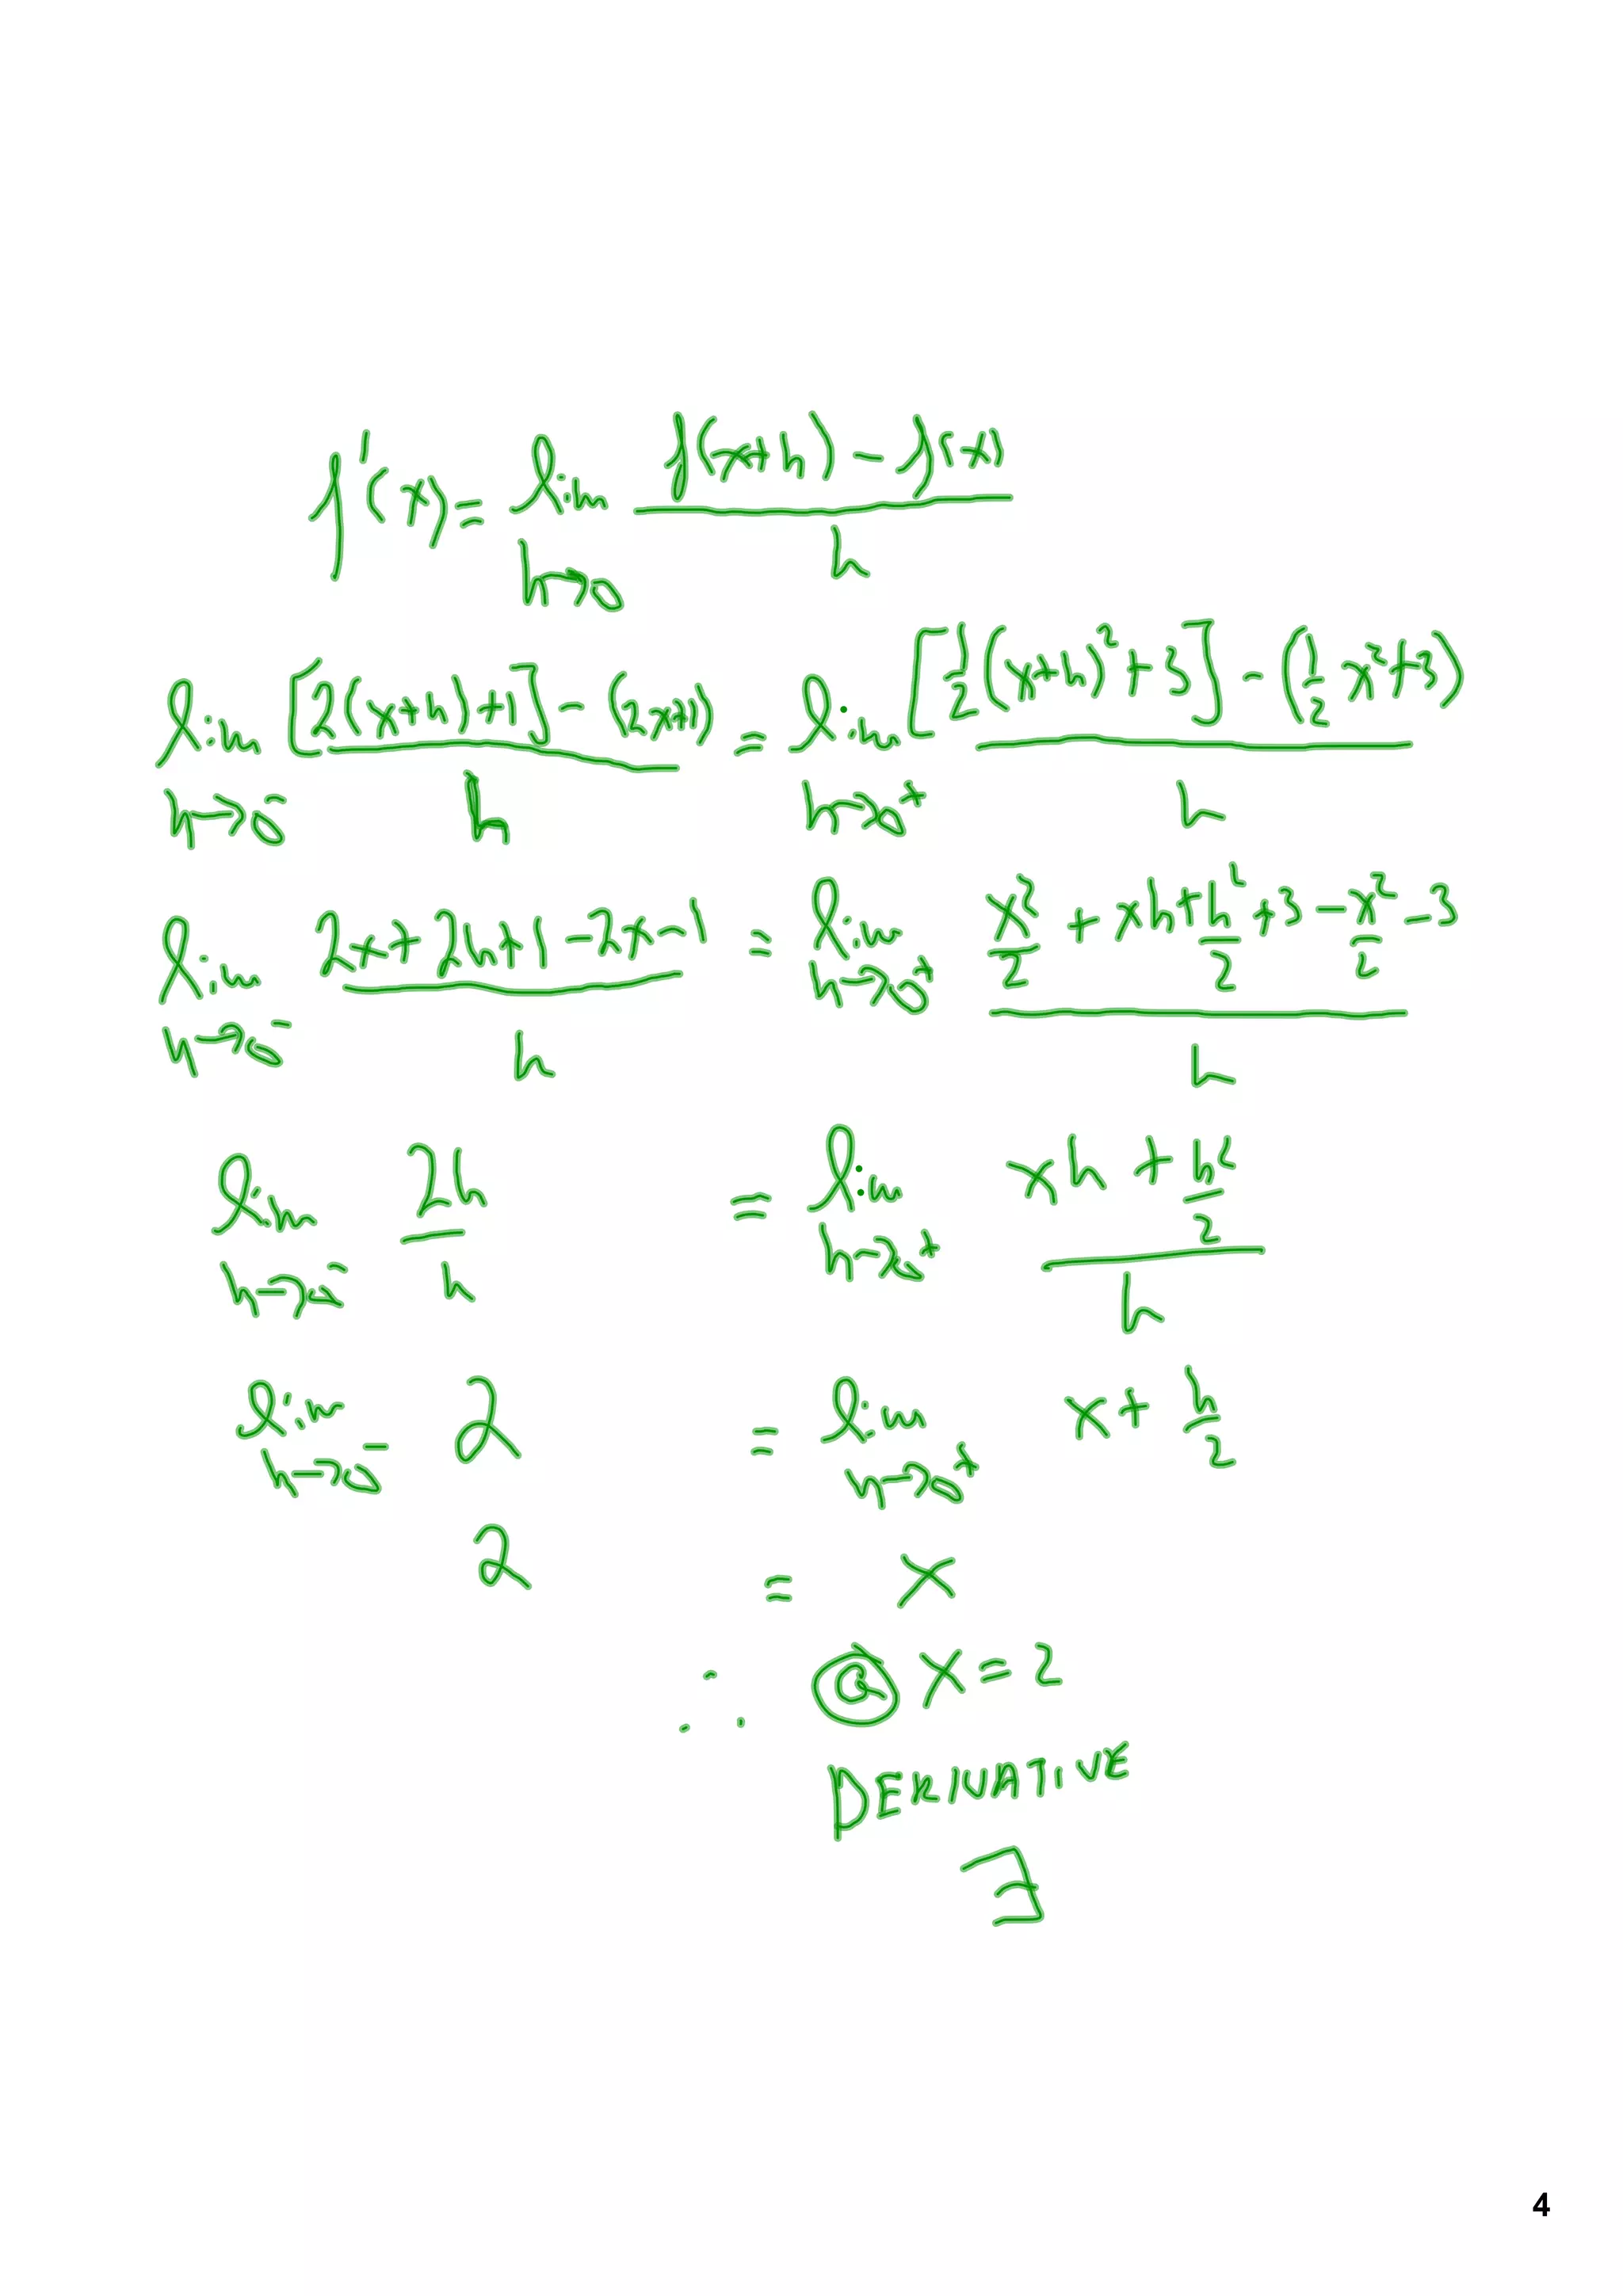 f'(x) = lim h→0 (f(x+h) - f(x))/h
lim h→0⁻ ([2(x+h)+1] - (2x+1))/h = lim h→0⁺ ([1/2(x+h)²+3] - (1/2 x²+3))/h
lim h→0⁻ (2x+2h+1-2x-1)/h = lim h→0⁺ (x²/2 + xh + h²/2 + 3 - x²/2 - 3)/h
lim h→0⁻ 2h/h = lim h→0⁺ (xh + h²/2)/h
lim h→0⁻ 2 = lim h→0⁺ x + h/2
2 = x
∴ @ x = 2
DERIVATIVE
∃
4